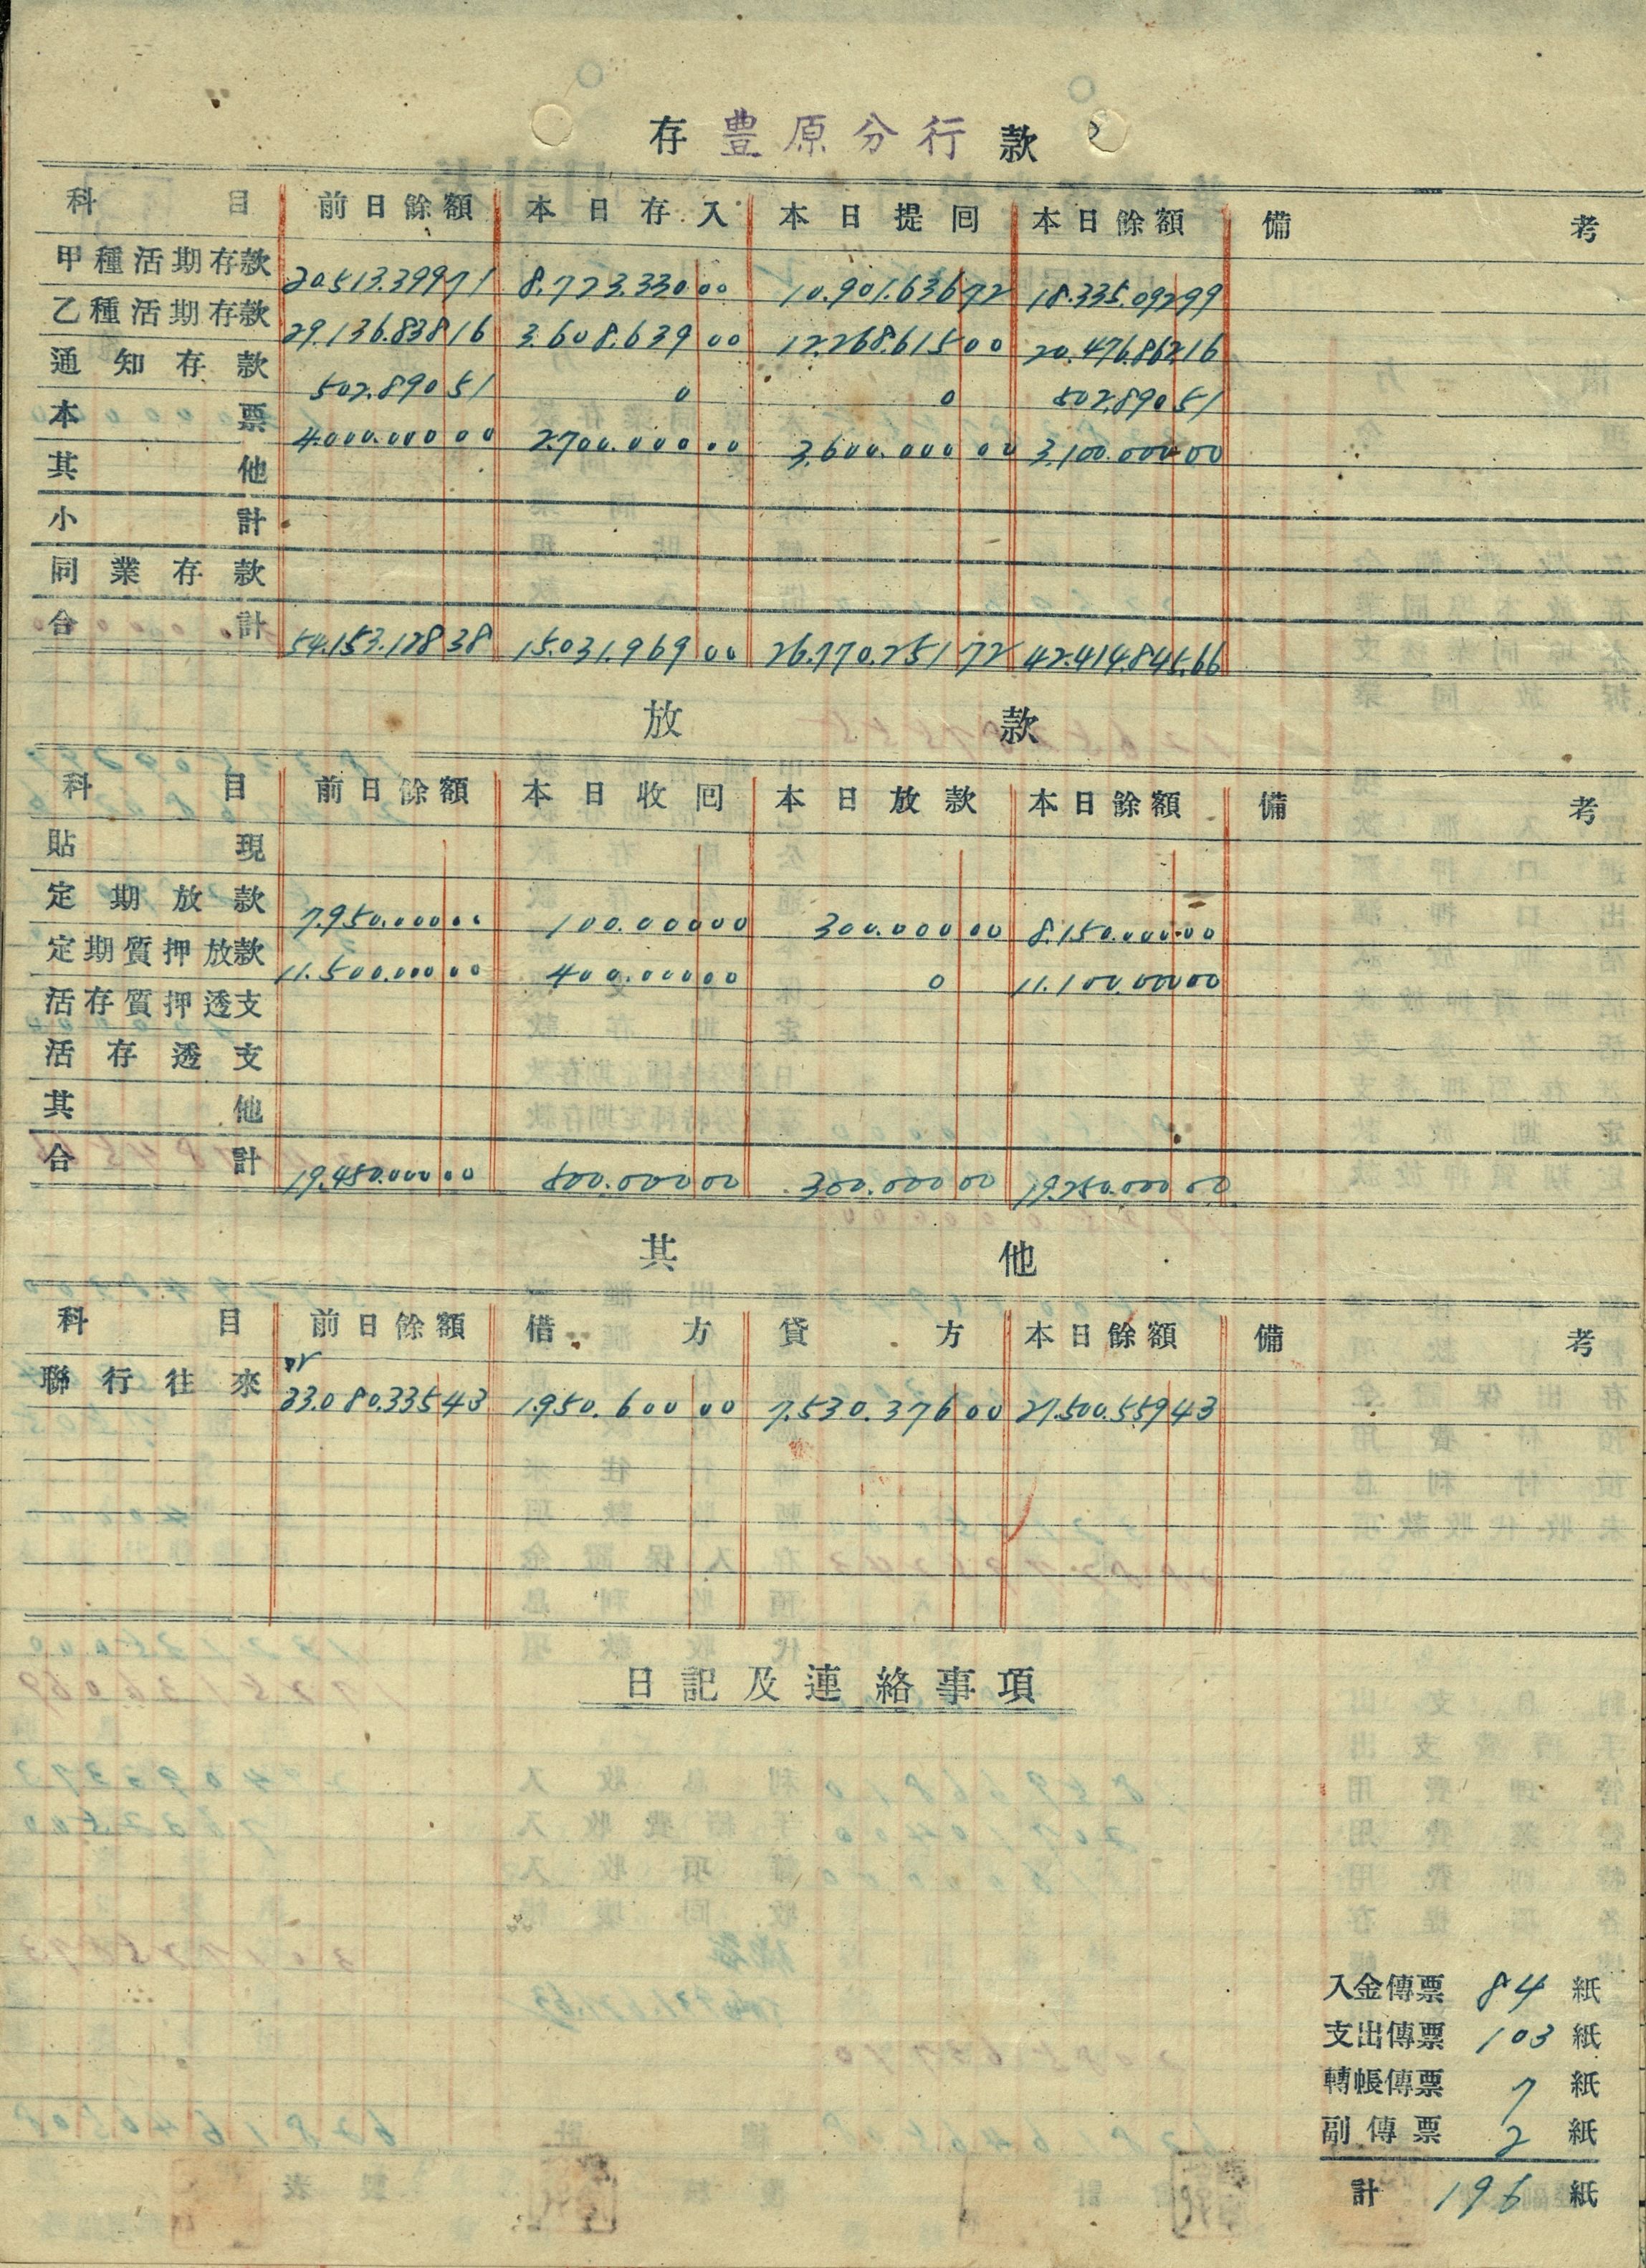 存 豊原分行 款
科目 前日餘額 本日存入 本日提囘 本日餘額 備考
甲種活期存款 20.513.399 71 8.723.330 00 10.901.636 72 18.335.092 99
乙種活期存款 29.136.838 16 3.608.639 00 12.268.615 00 20.476.862 16
通知存款 502.890 51 0 0 502.890 51
本票 4.000.000 00 2.700.000 00 3.600.000 00 3.100.000 00
其他
小計
同業存款
合計 54.153.128 38 15.031.969 00 26.770.251 72 42.414.845.66
放款
科目 前日餘額 本日收囘 本日放款 本日餘額 備考
貼現
定期放款 7.950.000 00 100.000 00 300.000 00 8.150.000 00
定期質押放款 11.500.000 00 400.000 00 0 11.100.000 00
活存質押透支
活存透支
其他
合計 19.450.000 00 500.000 00 300.000 00 19.250.000 00
其他
科目 前日餘額 借方 貸方 本日餘額 備考
聯行往來 33.080.335 43 1.950.600 00 7.530.376 00 27.500.559 43
日記及連絡事項
入金傳票 84 紙
支出傳票 103 紙
轉帳傳票 7 紙
副傳票 2 紙
計 196 紙